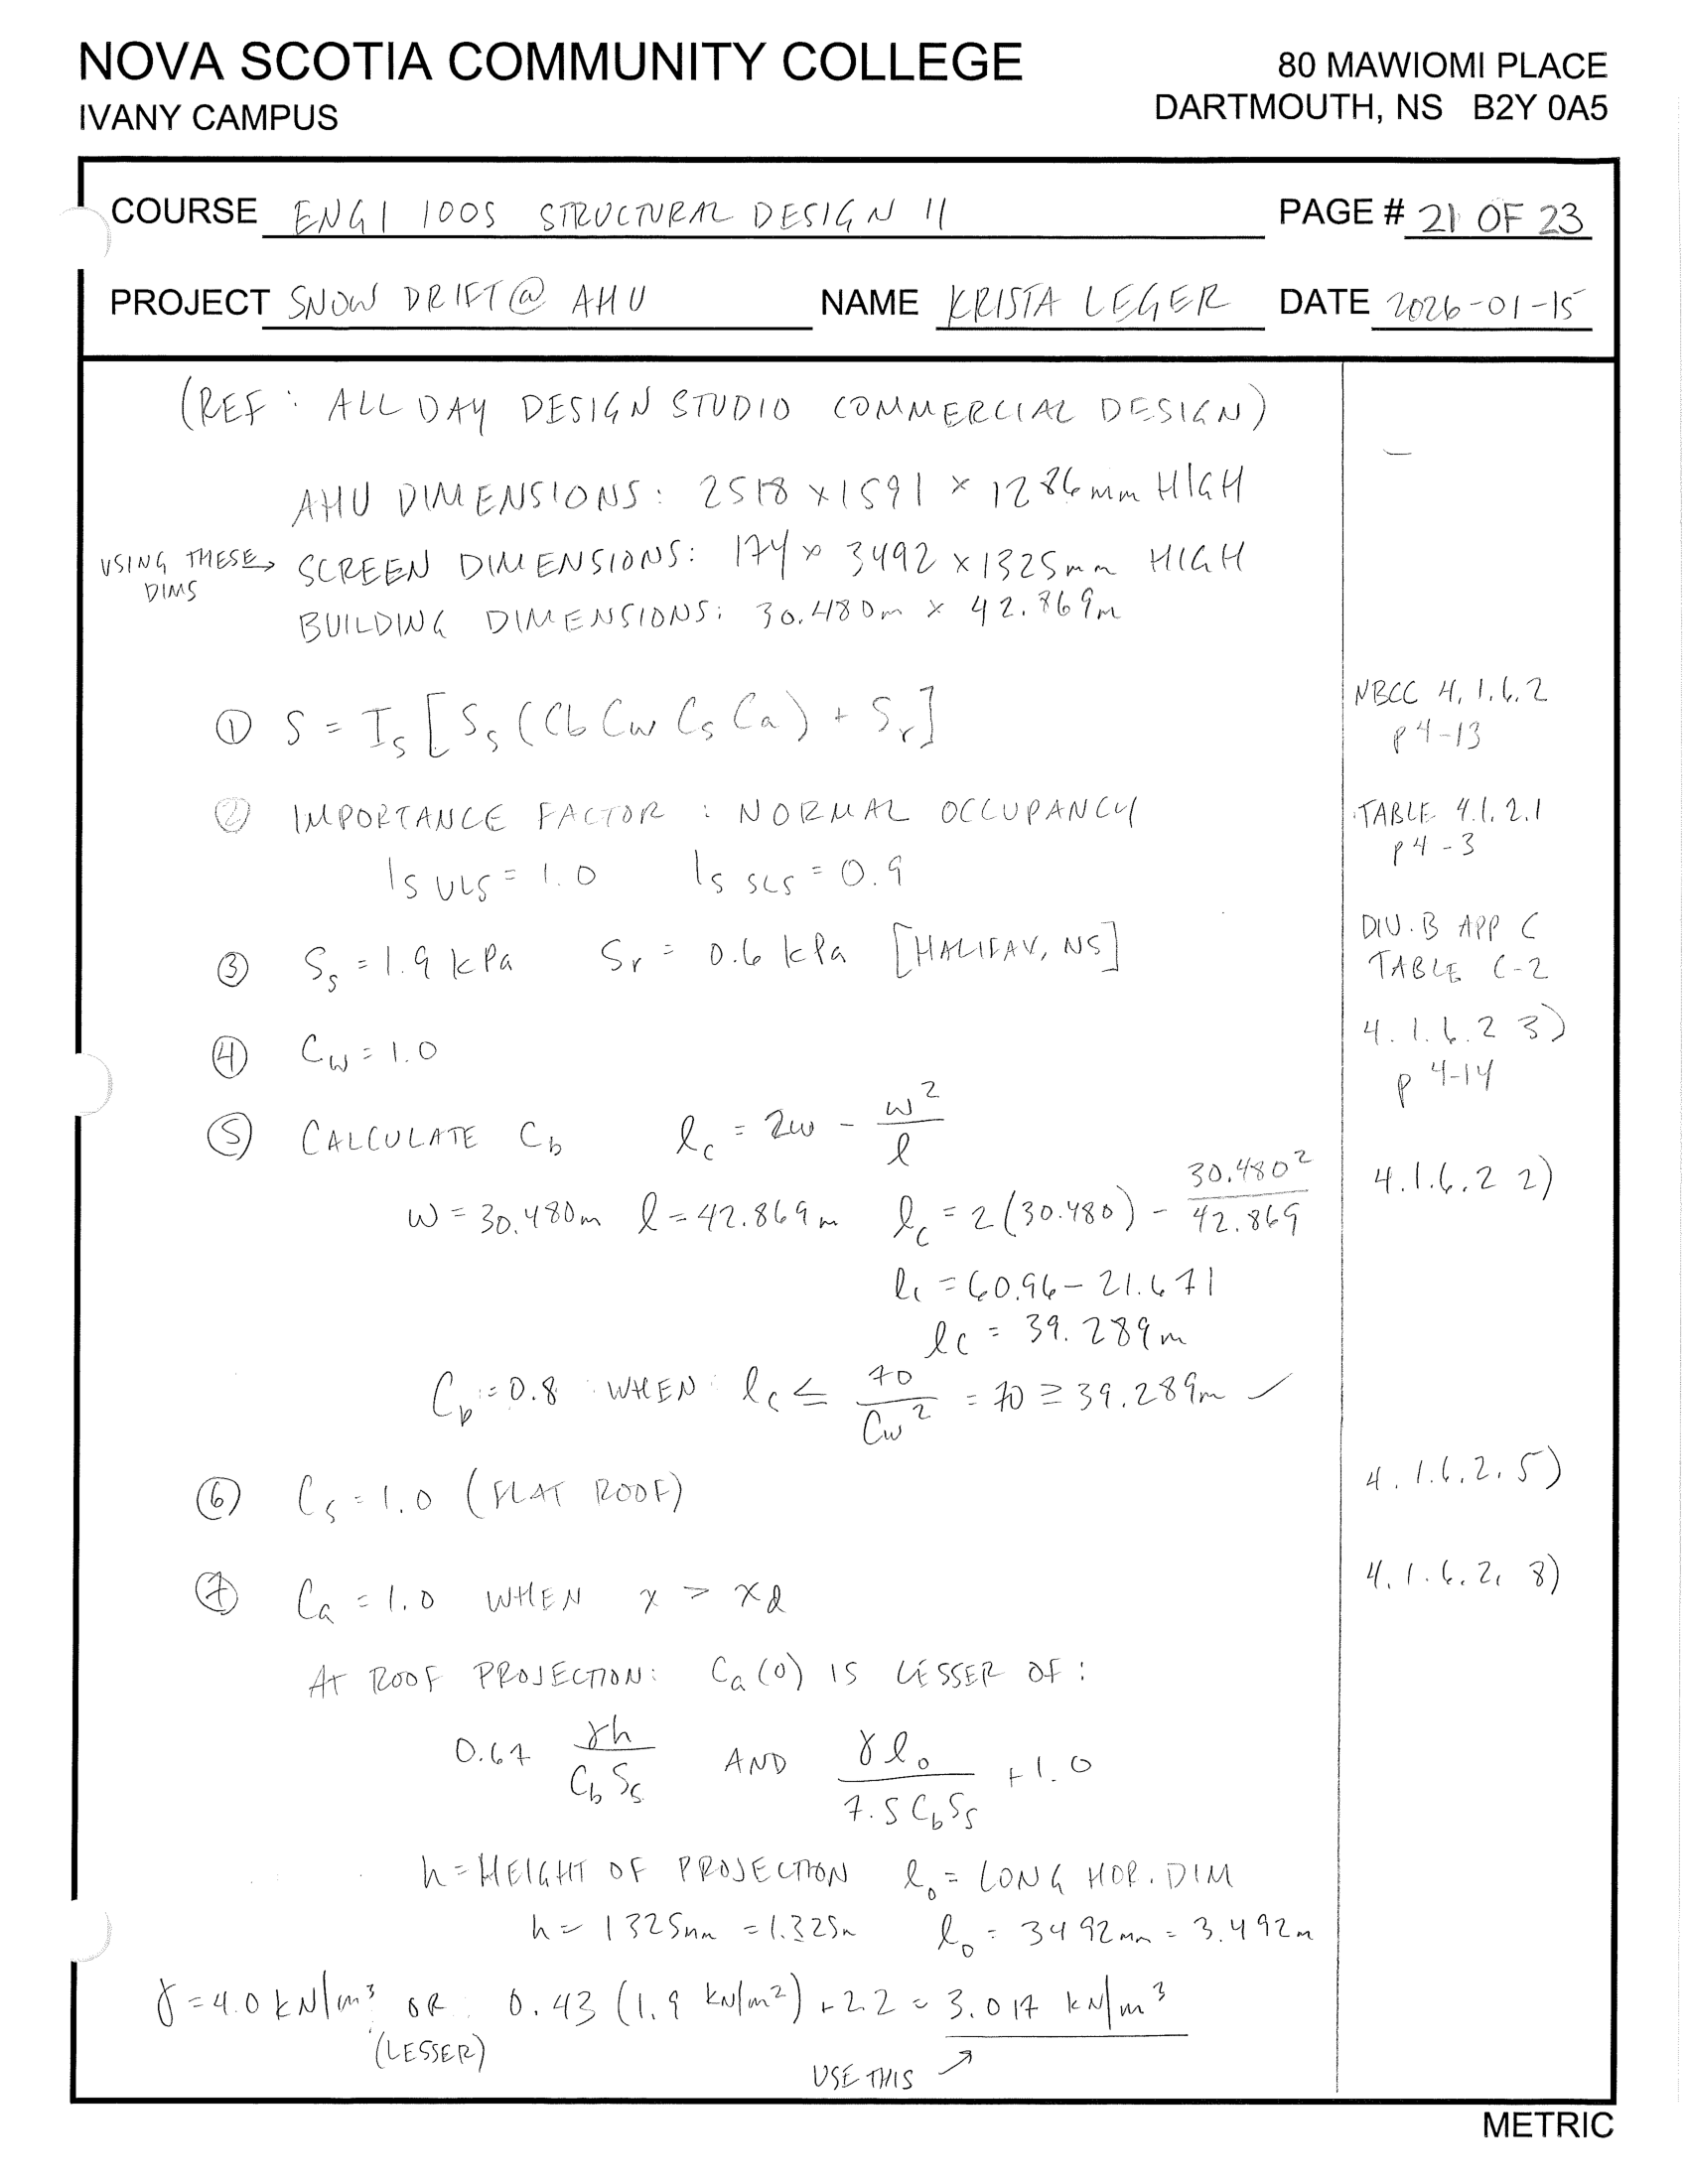 NOVA SCOTIA COMMUNITY COLLEGE
IVANY CAMPUS
80 MAWIOMI PLACE
DARTMOUTH, NS B2Y 0A5
COURSE ENGI 1005 STRUCTURAL DESIGN II
PAGE # 21 OF 23
PROJECT SNOW DRIFT @ AHU NAME KRISTA LEGER DATE 2026-01-15
(REF: ALL DAY DESIGN STUDIO COMMERCIAL DESIGN)
AHU DIMENSIONS: 2518 x 1591 x 1286mm HIGH
USING THESE → DIMS
SCREEN DIMENSIONS: 174 x 3492 x 1325mm HIGH
BUILDING DIMENSIONS: 30.480m x 42.869m
① S = Is [Ss (Cb Cw Cs Ca) + Sr]
NBCC 4.1.6.2
p 4-13
② IMPORTANCE FACTOR: NORMAL OCCUPANCY
TABLE 4.1.2.1
p 4-3
Is ULS = 1.0 Is SLS = 0.9
③ Ss = 1.9 kPa Sr = 0.6 kPa [HALIFAX, NS]
DIV. B APP C
TABLE C-2
④ Cw = 1.0
4.1.6.2 3)
p 4-14
⑤ CALCULATE Cb lc = 2w - w²/l
w = 30.480m l = 42.869m lc = 2(30.480) - 30.480²/42.869
4.1.6.2 2)
lc = 60.96 - 21.671
lc = 39.289m
Cb = 0.8 WHEN lc ≤ 70/Cw² = 70 ≥ 39.289m ✓
⑥ Cs = 1.0 (FLAT ROOF)
4.1.6.2.5)
⑦ Ca = 1.0 WHEN x > xd
4.1.6.2. 8)
AT ROOF PROJECTION: Ca(0) IS LESSER OF:
0.67 γh/CbSs AND γl₀/7.5CbSs + 1.0
h = HEIGHT OF PROJECTION l₀ = LONG HOR. DIM
h = 1325mm = 1.325m l₀ = 3492mm = 3.492m
γ = 4.0 kN/m³ OR 0.43 (1.9 kN/m²) + 2.2 = 3.017 kN/m³
(LESSER)
USE THIS ↗
METRIC